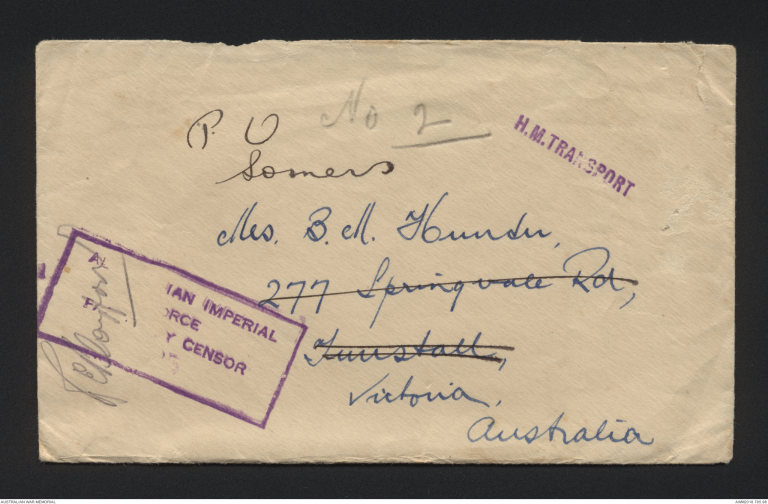 No 2
H.M.TRANSPORT
P. O
Somers
Mrs. B. M. Hunter,
277 Springvale Rd,
Tunstall,
Victoria,
Australia
A IAN IMPERIAL
ORCE
P Y CENSOR
AUSTRALIAN WAR MEMORIAL